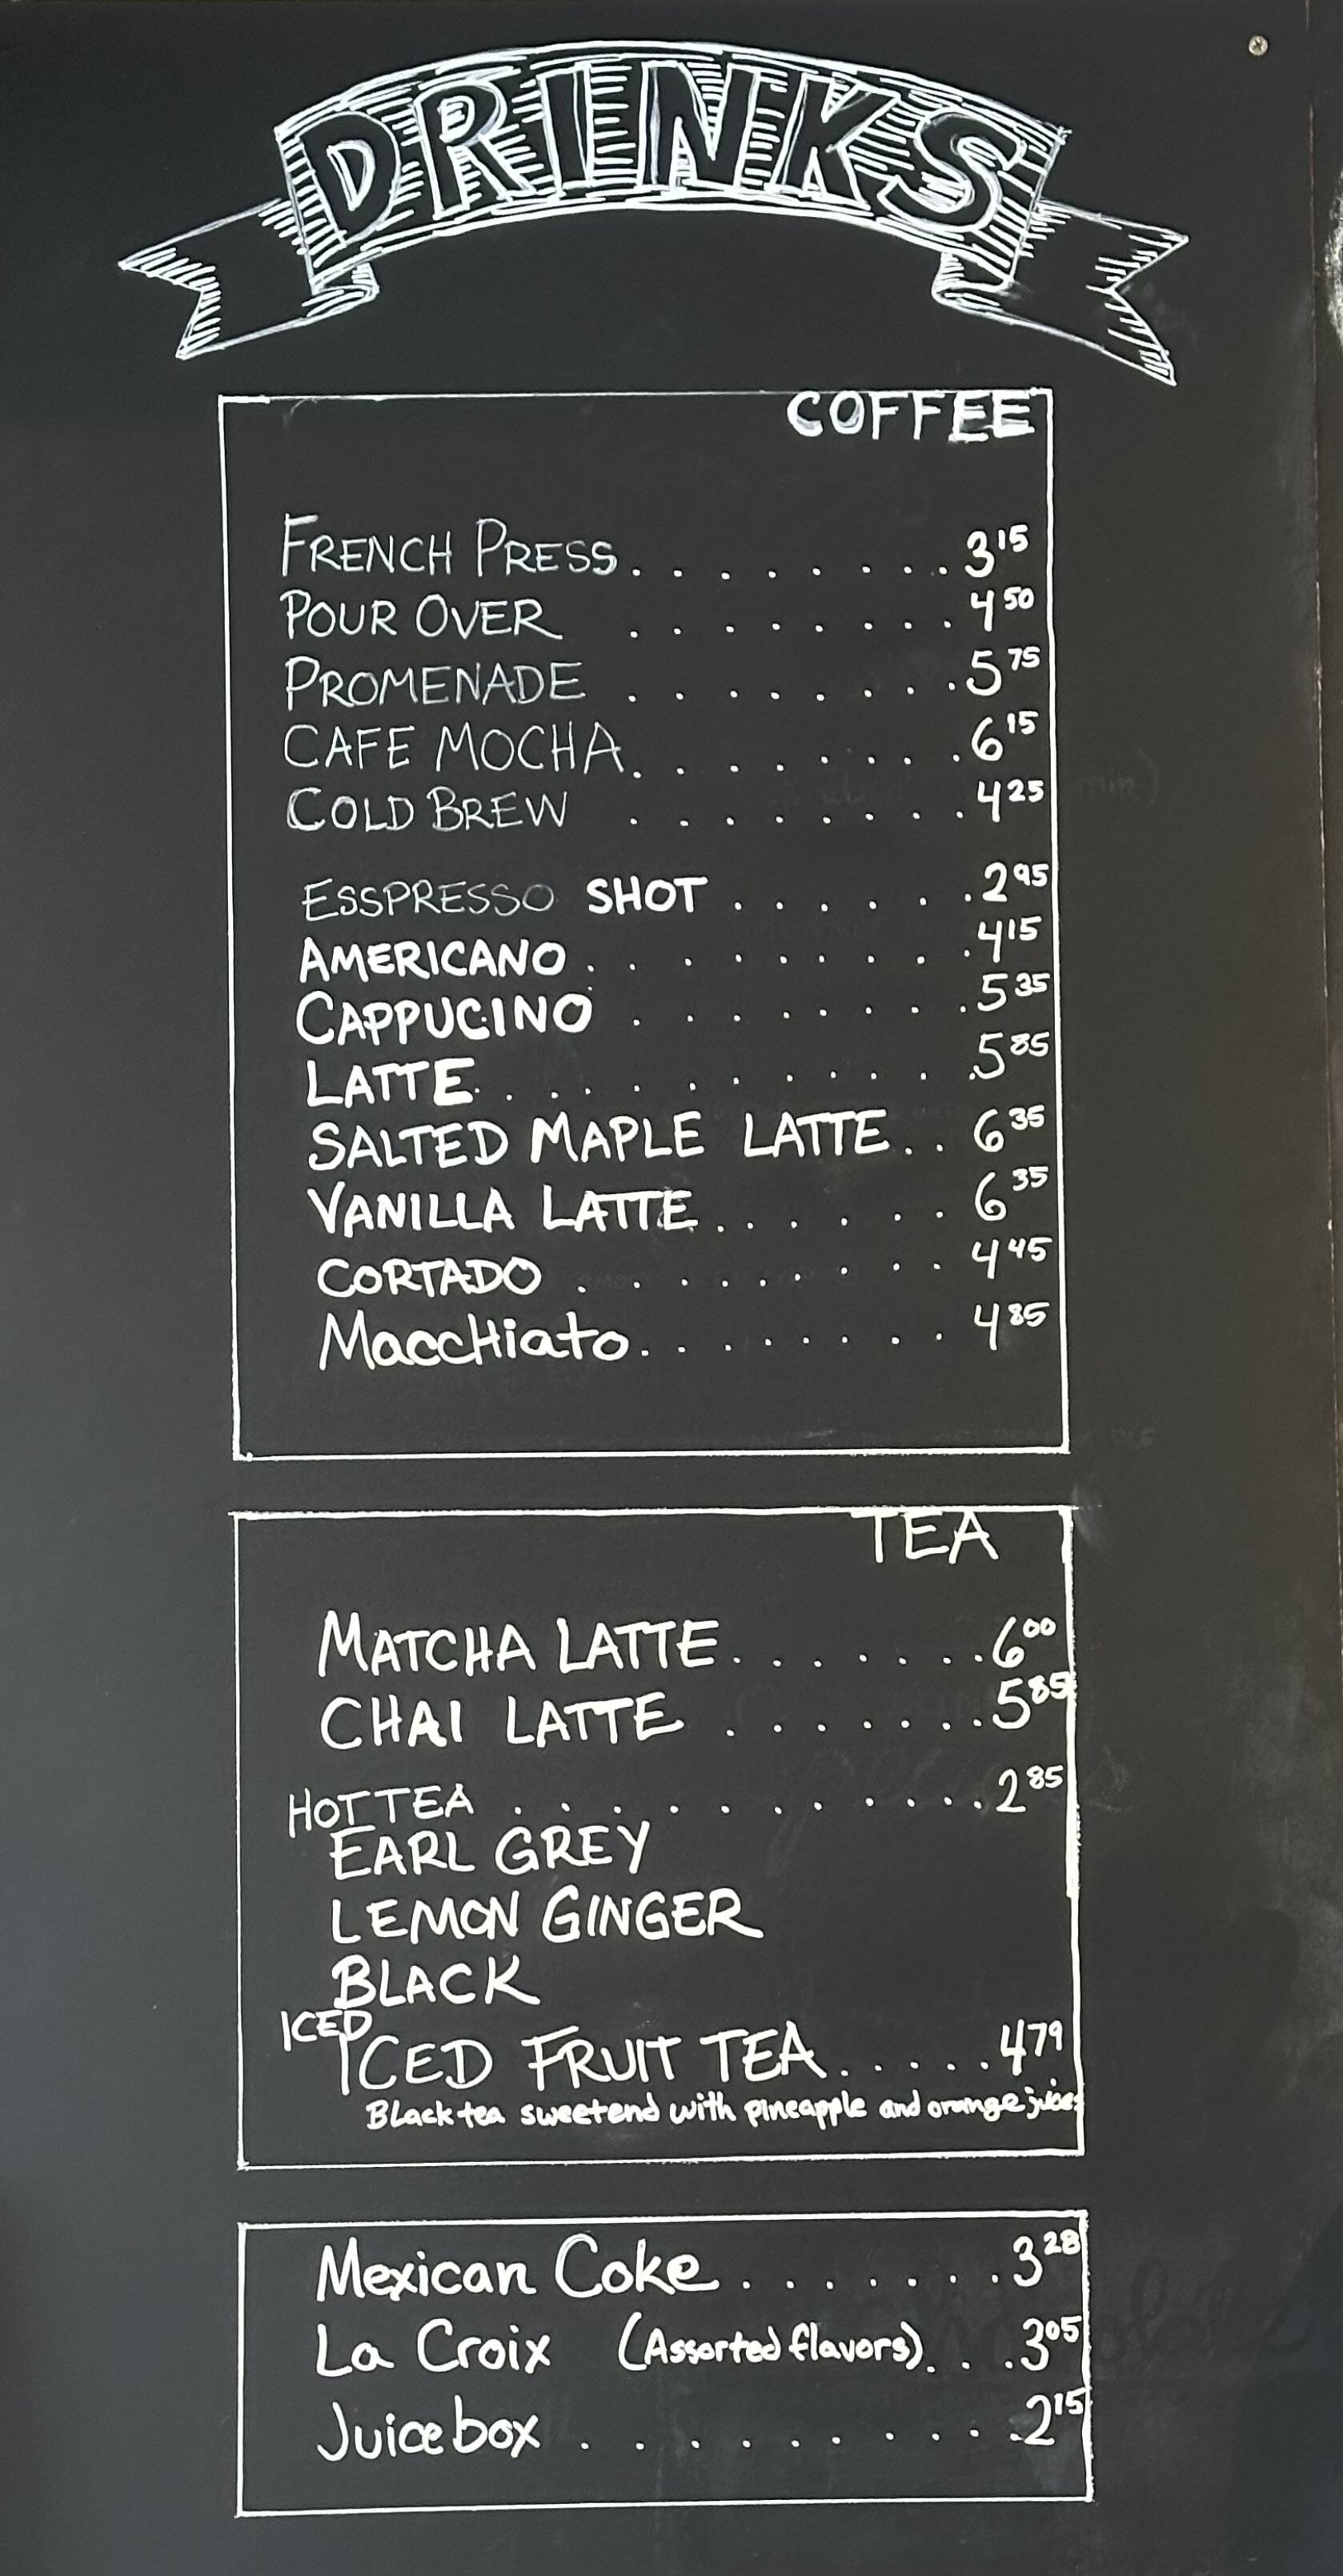 DRINKS
COFFEE
FRENCH PRESS. . . . . . . . . 3 15
POUR OVER . . . . . . . . 4 50
PROMENADE . . . . . . . . 5 75
CAFE MOCHA. . . . . . . . 6 15
COLD BREW . . . . . . . . 4 25
ESSPRESSO SHOT . . . . . . 2 95
AMERICANO . . . . . . . . . 4 15
CAPPUCINO . . . . . . . . 5 35
LATTE. . . . . . . . . . . 5 85
SALTED MAPLE LATTE. . 6 35
VANILLA LATTE. . . . . . 6 35
CORTADO . . . . . . . . . 4 45
MaccHiato. . . . . . . . 4 85
TEA
MATCHA LATTE. . . . . . . 6 00
CHAI LATTE . . . . . . . 5 85
HOT TEA . . . . . . . . . . 2 85
EARL GREY
LEMON GINGER
BLACK
ICED
ICED FRUIT TEA. . . . . 4 79
Black tea sweetend with pineapple and orange juice
Mexican Coke . . . . . . . 3 28
La Croix (Assorted flavors). . . 3 05
Juice box . . . . . . . . . 2 15